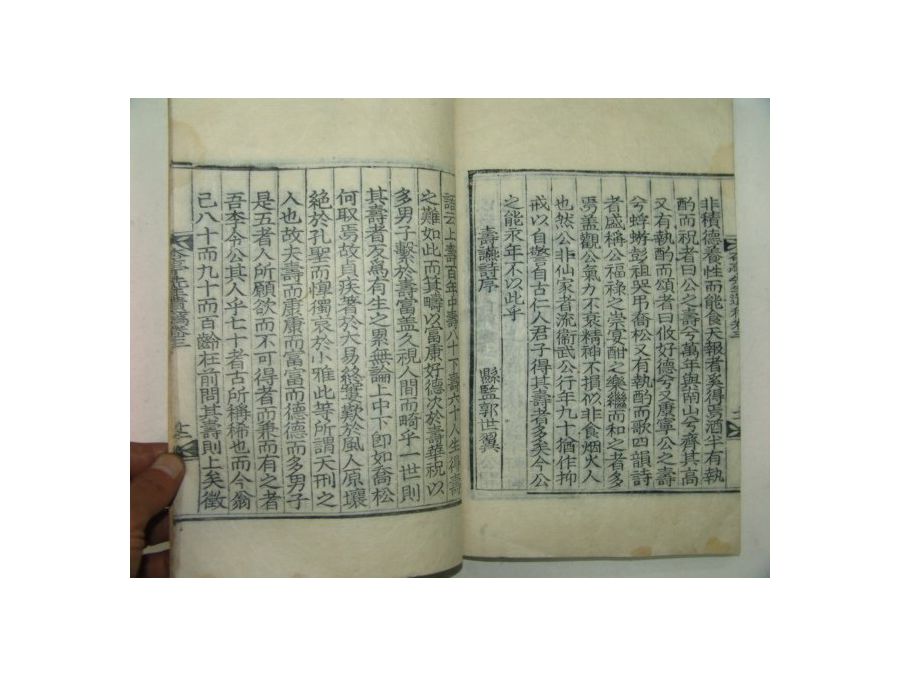 非積德養性而能食天報者奚得焉酒半有執
酌而祝者曰公之壽兮萬年與南山兮齊其高
又有執酌而頌者曰攸好德兮又康寧公之壽
兮蜉蝣彭祖哭弔喬松又有執酌而歌四韻詩
者盛稱公福祿之崇宴酣之樂繼而和之者多
焉盖觀公氣力不衰精神不損似非食烟火人
也然公非仙家者流衛武公行年九十猶作抑
戒以自警自古仁人君子得其壽者多矣今公
之能永年不以此乎
壽讌詩序
縣監郭世翼
語云上壽百年中壽八十下壽六十人生得壽
之難如此而其疇以富康好德次於壽華祝以
多男子繫於壽富盖久視人間而畸乎一世則
其壽者反爲有生之累無論上中下卽如喬松
何取焉故貞疾著於大易終窶歎於風人原壤
絕於孔聖而惸獨哀於小雅此等所謂天刑之
人也故夫壽而康康而富富而德德而多男子
是五者人所願欲而不可得者而兼而有之者
吾李令公其人乎七十者古所稱稀也而今翁
己八十而九十而百齡在前問其壽則上矣徵